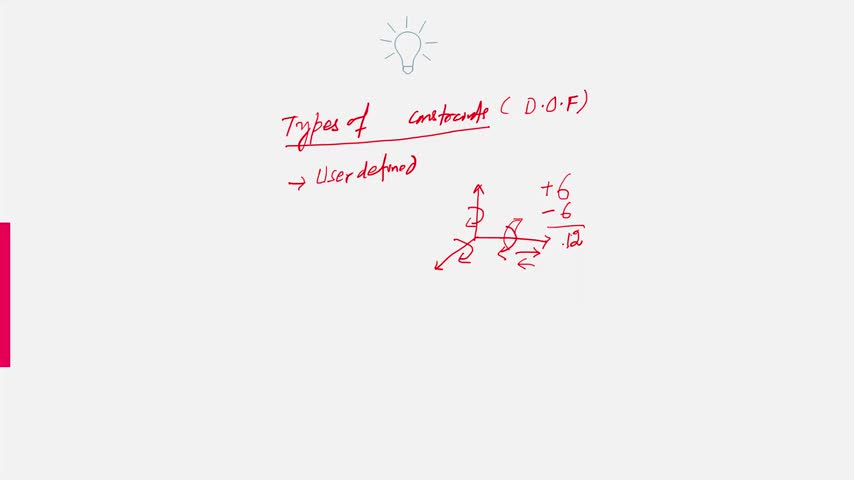 Types of constraints (D.O.F)
→ User defined
+6
-6
.12